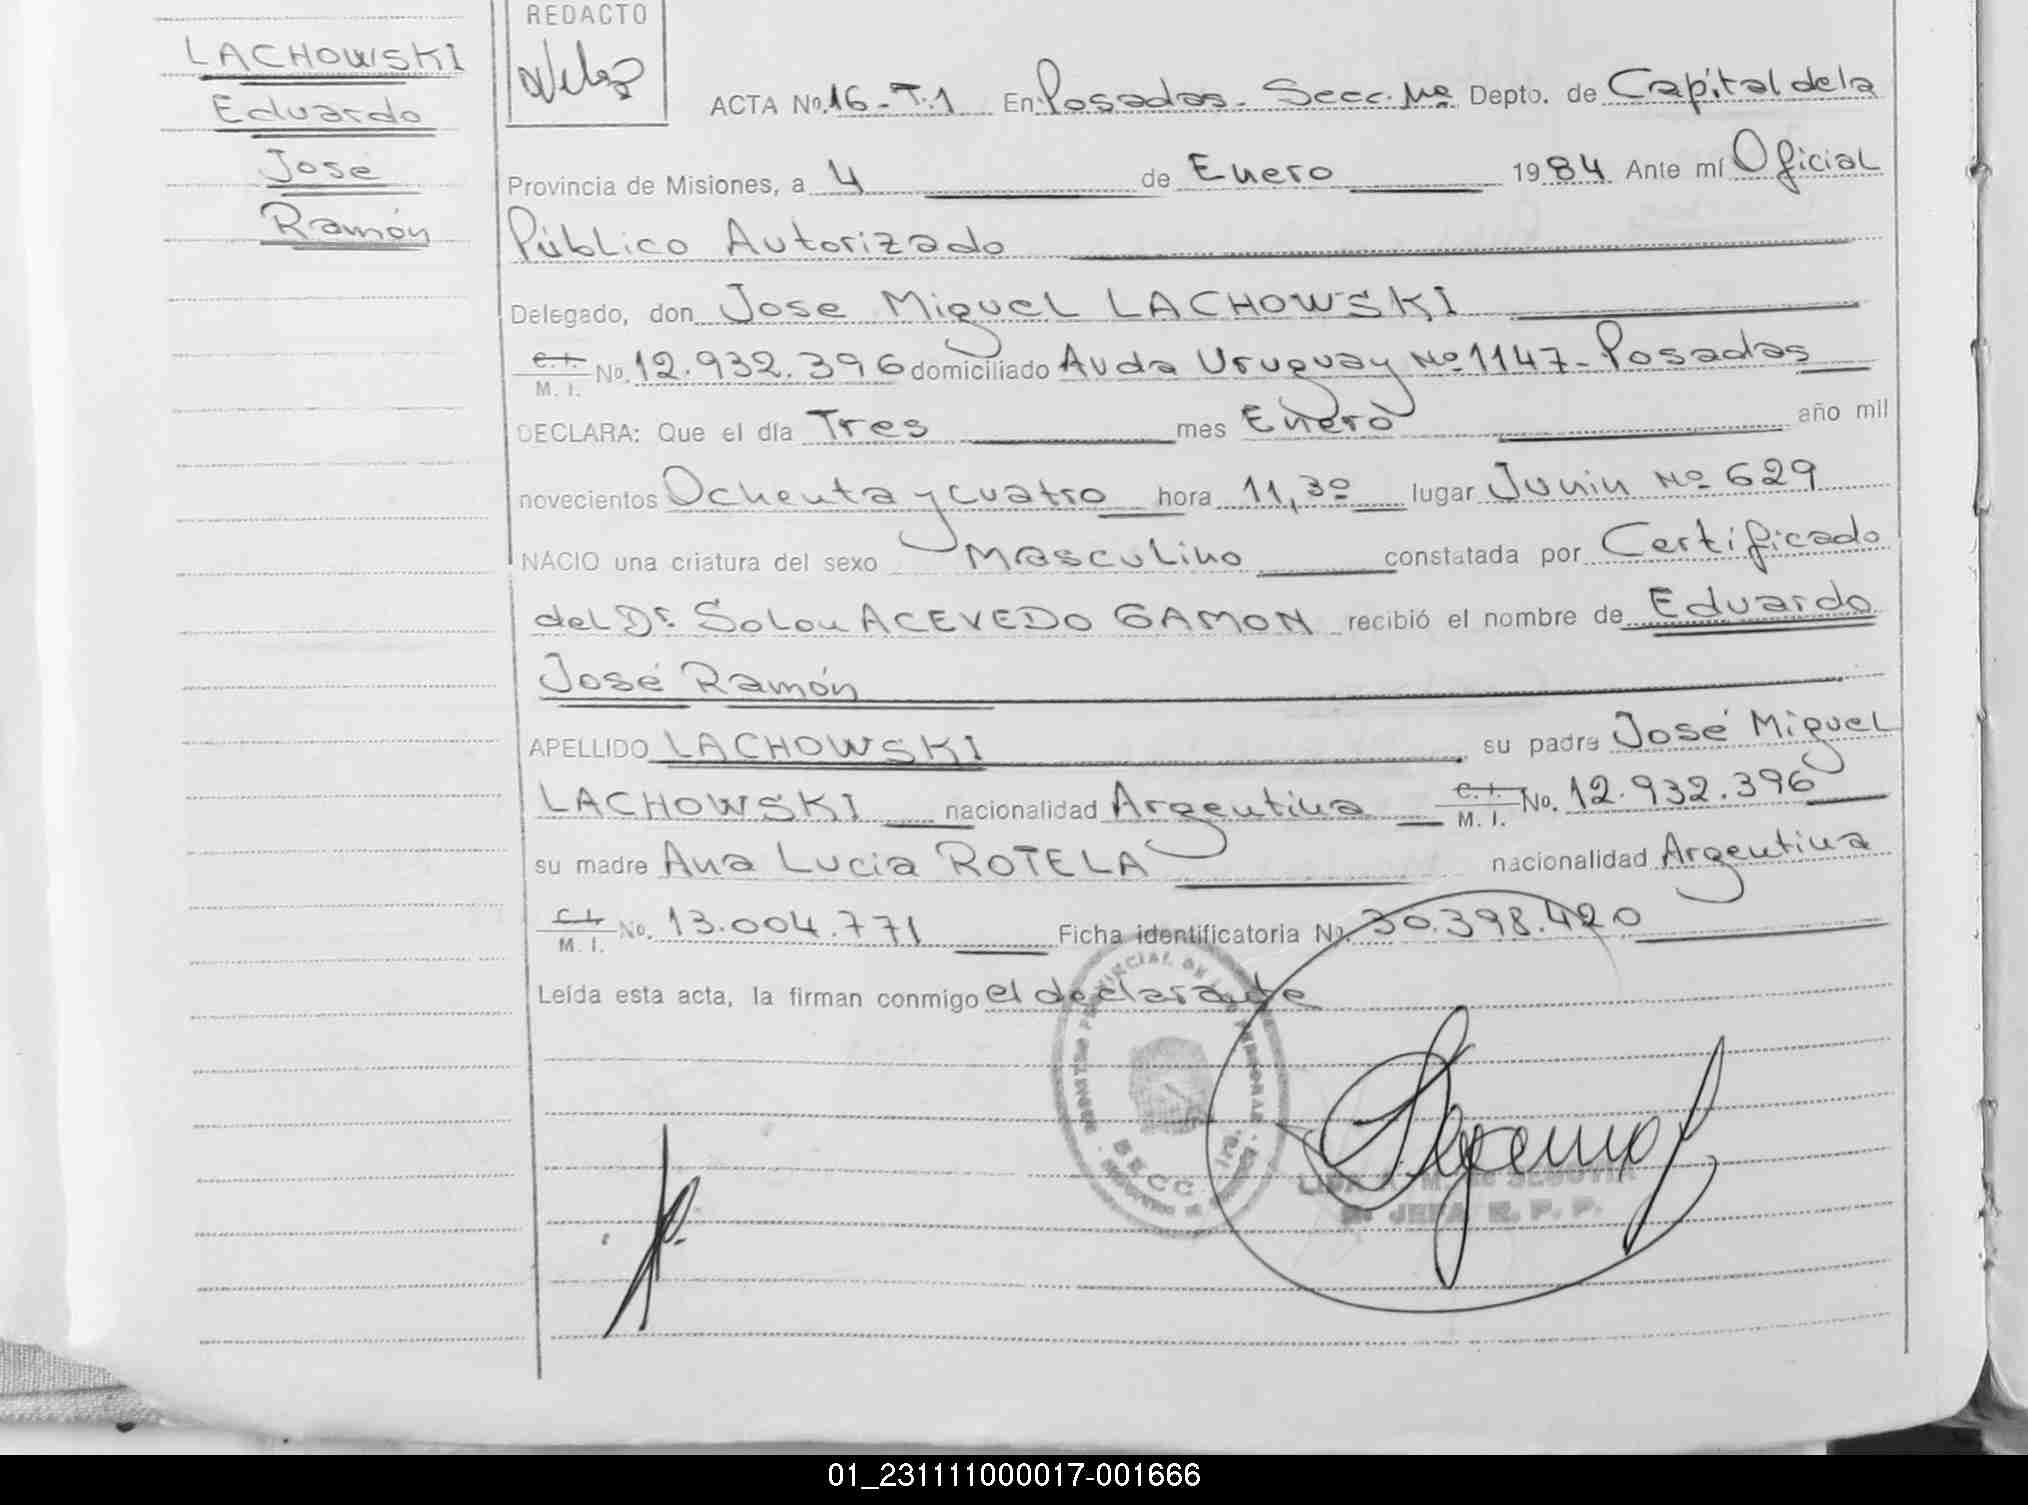 LACHOWSKI
Eduardo
José
Ramón
REDACTO
ACTA No. 16-T.1 En Posadas- Secc. 1ra Depto. de Capital de la
Provincia de Misiones, a 4 de Enero 1984 Ante mí Oficial
Público Autorizado
Delegado, don Jose Miguel LACHOWSKI
C.I. M. I. No. 12.932.396 domiciliado Avda Uruguay No 1147- Posadas
DECLARA: Que el día Tres mes Enero año mil
novecientos Ochenta y cuatro hora 11,30 lugar Junin No 629
NACIO una criatura del sexo Masculino constatada por Certificado
del Dr. Solon ACEVEDO GAMON recibió el nombre de Eduardo
José Ramón
APELLIDO LACHOWSKI su padre José Miguel
LACHOWSKI nacionalidad Argentina C.I. M. I. No. 12.932.396
su madre Ana Lucia ROTELA nacionalidad Argentina
C.I. M. I. No. 13.004.771 Ficha identificatoria No. 30.398.420
Leída esta acta, la firman conmigo el declarante
PROVINCIAL DE LAS PERSONAS
M. de SEGOVIA
JEFA R. P. P.
01_231111000017-001666